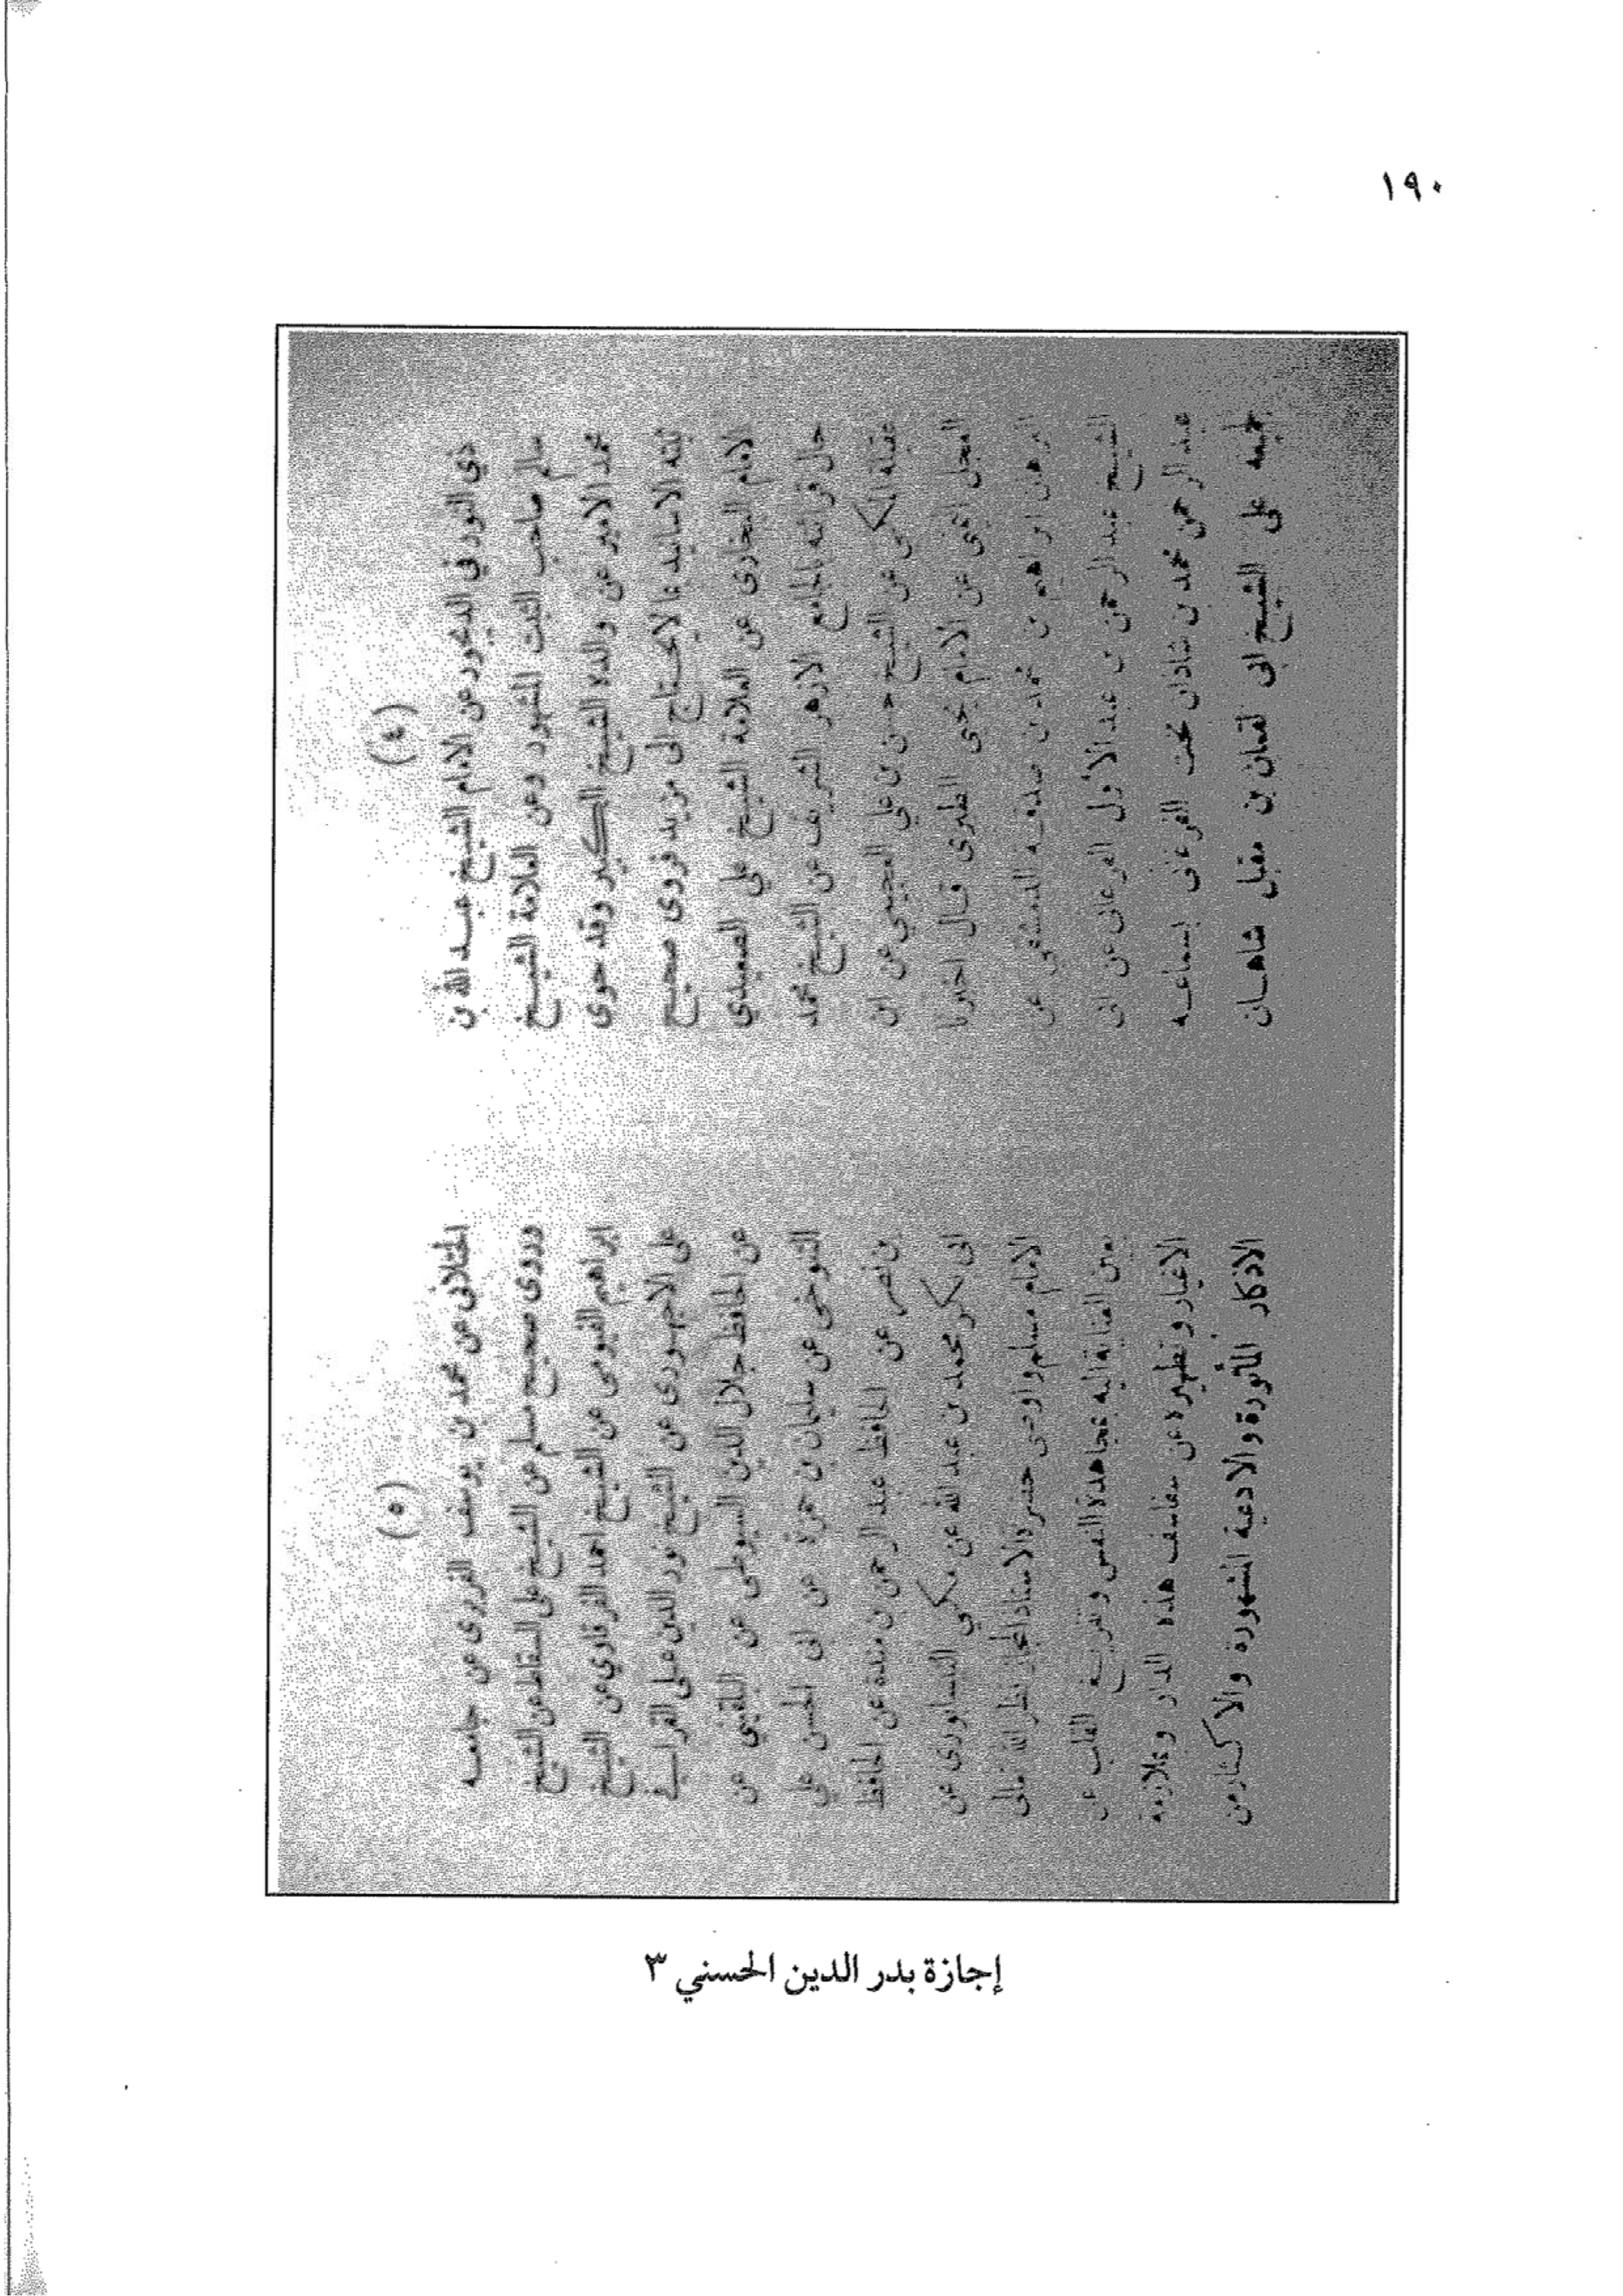 ١٩٠
(٤)
ذي النور في الديجور عن الامام الشيخ عبد الله بن
سالم صاحب الثبت المشهور وعن العلامة الشيخ
محمد الامير عن والده الشيخ الكبير وقد حوى
ثبته الاسانيد بما لايحتاج الى مزيد فروى صحيح
الامام البخارى عن العلامة الشيخ علي الصعيدي
حال قرائته بالجامع الازهر الشريف عن الشيخ محمد
عقيلة المكي عن الشيخ حسن بن علي العجيمي عن ابن
العجل اليمنى عن الامام يحيى الطبرى قال اخبرنا
البرهان ابراهيم بن محمد بن صدقة الدمشقى عن
الشيخ عبد الرحمن بن عبد الأول الفرغانى عن ابى
عبد الرحمن محمد بن شاذان بخت الفرغانى بسماعه
لجميعه على الشيخ ابى لقمان بن مقبل شاهان
(٥)
الختلانى عن محمد بن يوسف الفربرى عن جامعه
وروى صحيح مسلم عن الشيخ على السقاط عن الشيخ
ابراهيم الفيومى عن الشيخ احمد الفرقاوي عن الشيخ
على الاجهورى عن الشيخ نور الدين على القرافي
عن الحافظ جلال الدين السيوطى عن البلقينى عن
التنوخى عن سليمان بن حمزة عن ابى الحسن علي
بن نصر عن الحافظ عبد الرحمن بن مندة عن الحافظ
ابى بكر محمد بن عبد الله عن مكي النيسابورى عن
الامام مسلم واوصى حضرة الاستاذ المجاز نظر الله تعالى
بعين العناية اليه بمجاهدة النفس وتفريغ القلب عن
الاغيار وتطهيره عن سفاسف هذه الدار وبملازمة
الاذكار المأثورة والادعية المشهورة والاكثار من
إجازة بدر الدين الحسني ٣